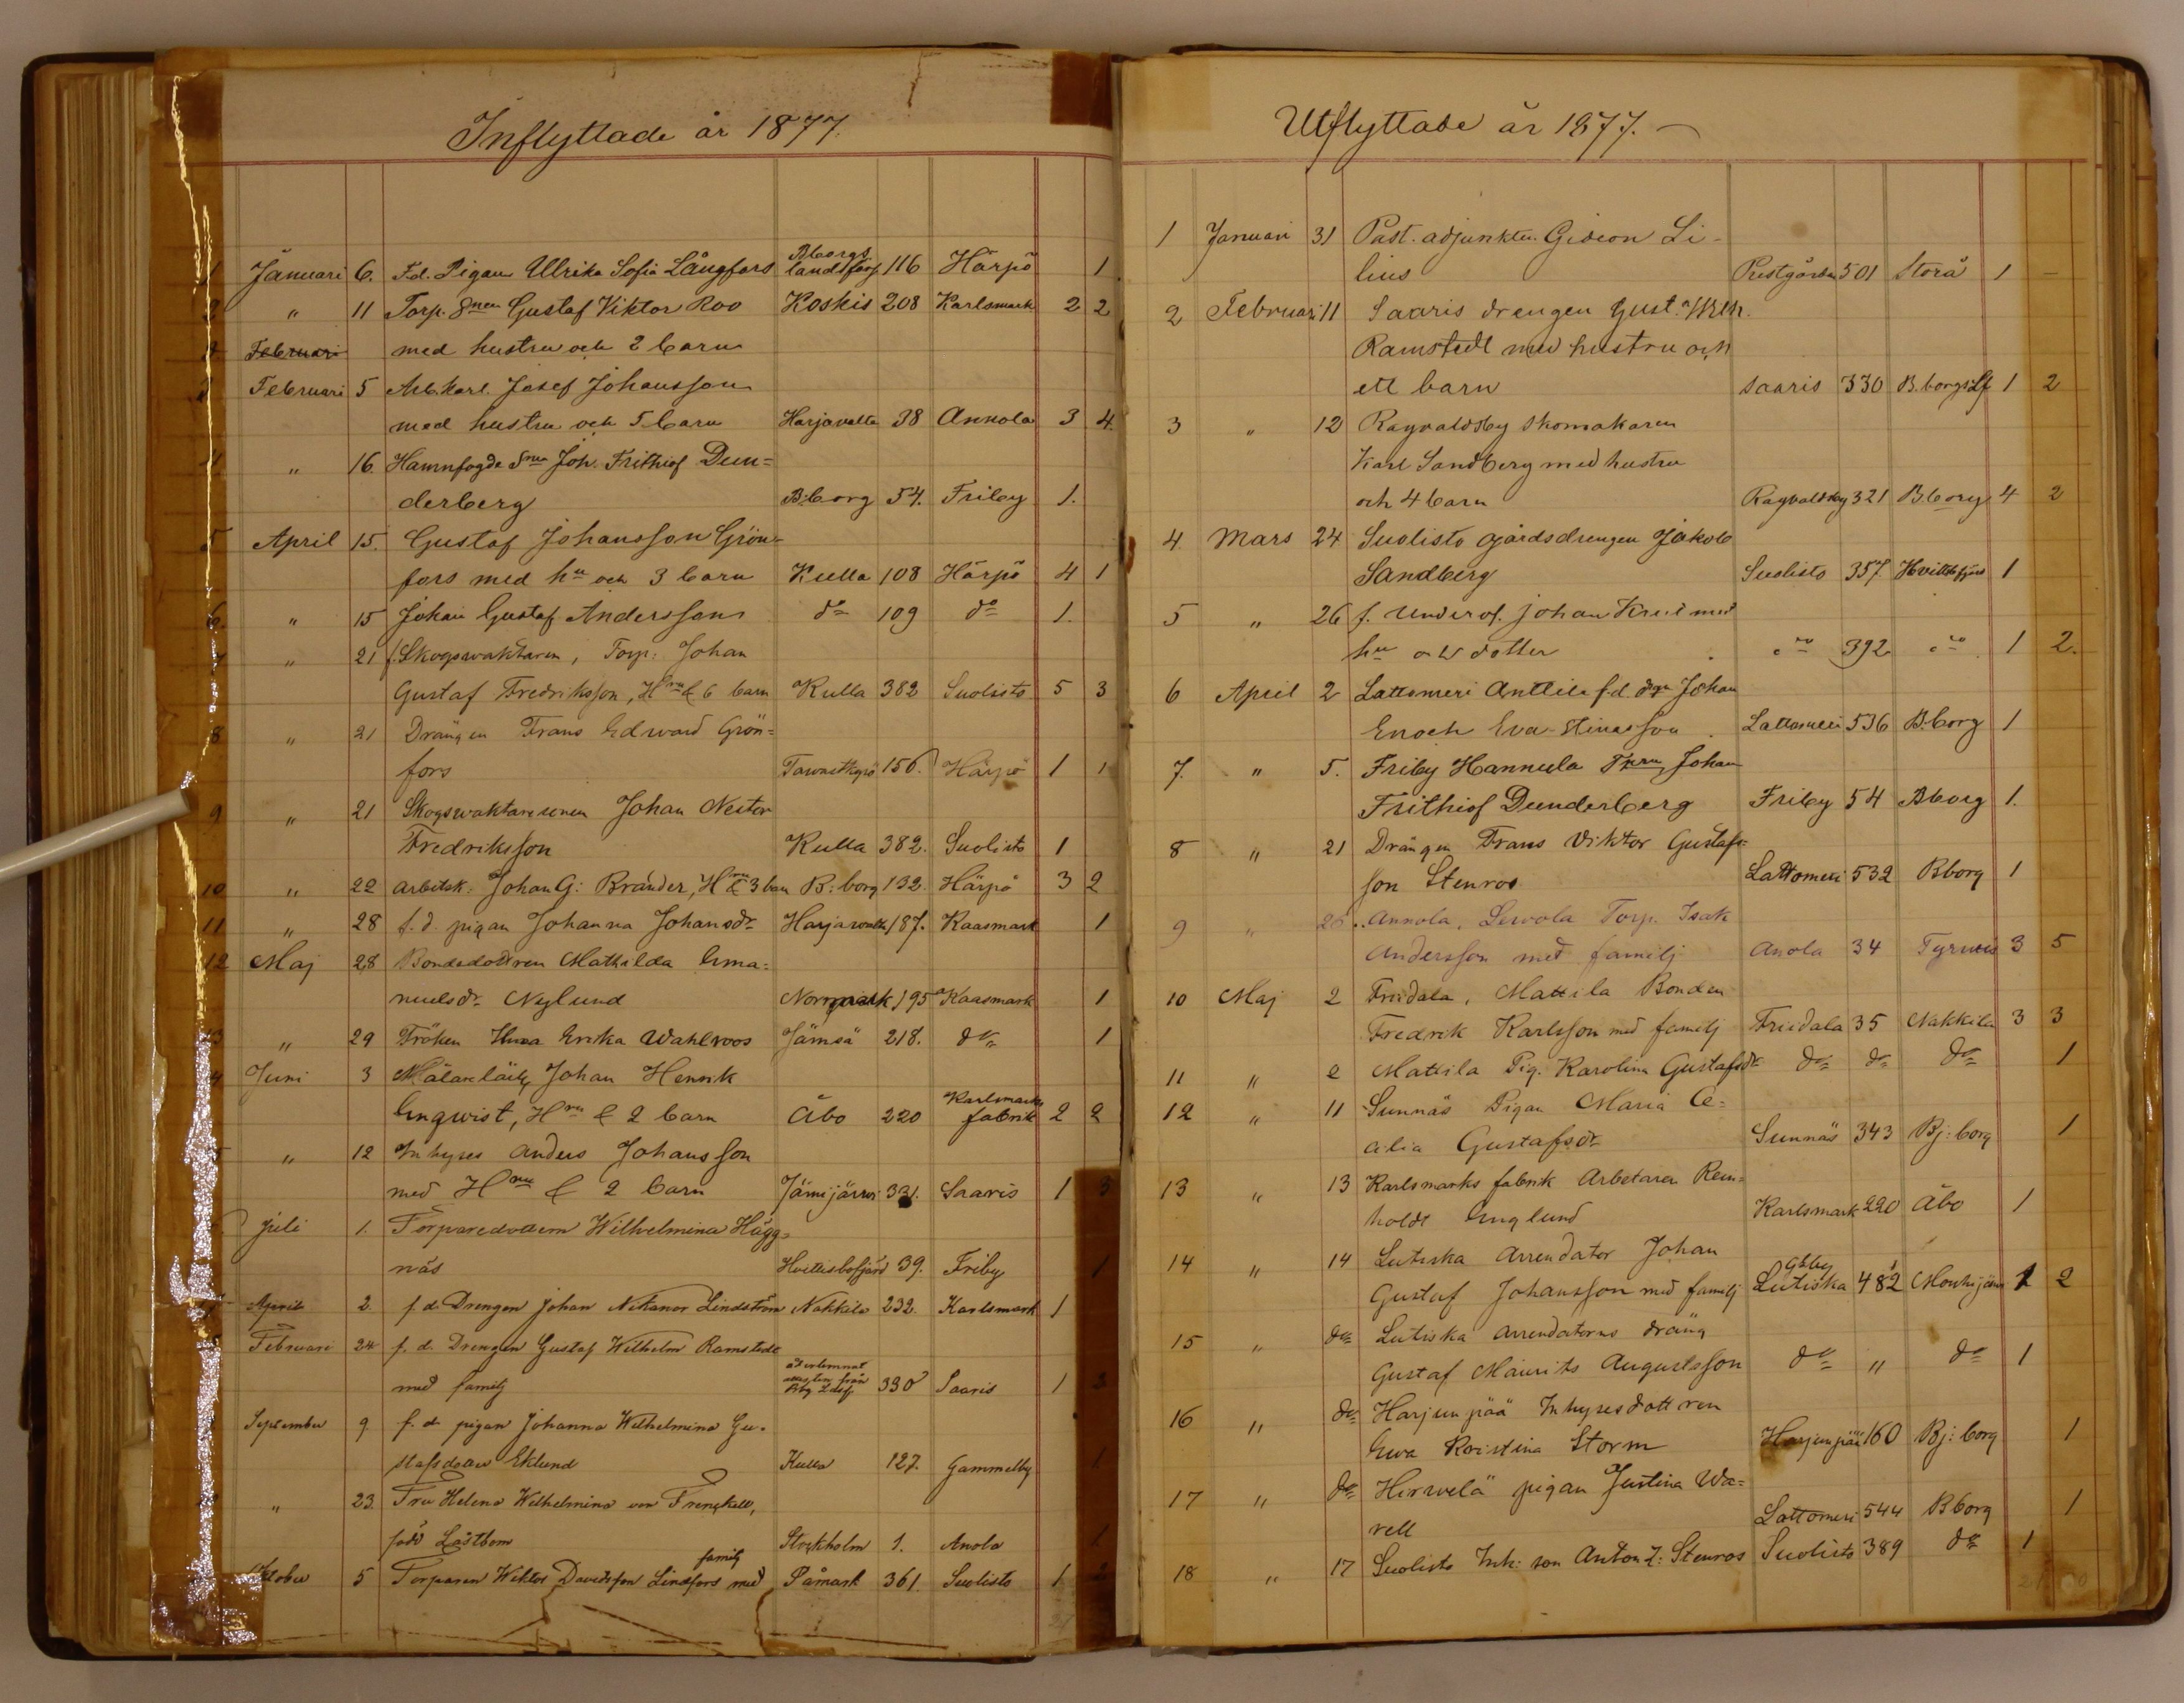 Inflyttade år 1877.
Bborgs
1 Januari 6. F.d. Pigan Ullrika Sofia Långfors landsförs 116 Härpö 1
2 " 11 Torp. Snen Gustaf Viktor Roo Koskis 208 Karlsmark 2 2
Februari med hustru och 2 barn
Februari 5 Arb.karl. Josef Johansson
med hustru och 5 barn Harjavalta 38 Annola 3 4.
4 " 16 Hamnfogde Sne Joh. Frithiof Dun=
derberg B:borg 54. Friby 1.
5 April 15. Gustaf Johansson Grön-
fors med hu och 3 barn Kulla 108 Härpö 4 1
6. " 15 Johan Gustaf Andersson do 109 do 1.
7 " 21 f. Skogswaktaren, Torp: Johan
Gustaf Fredriksson, Hru & 6 barn Kulla 382 Suolisto 5 3
8 " 21 Drängen Frans Edward Grön=
fors 156. Härpö 1 1
9 " 21 Skogswaktaresonen Johan Nestor
Fredriksson Kulla 382. Suolisto 1
10 " 22 Arbetsk: Johan G: Brander, Hru & 3 barn B:borg 132. Härpö 3 2
11 " 28 f.d. pigan Johanna Johansdr Harjawalta 187. Kaasmark 1
12 Maj 28 Bondedottren Mathilda Ema=
nuelsdr Nylund Norrmark 195 Kaasmark 1
13 " 29 Fröken Erika Wahlroos Jämsä 218. do 1
14 Juni 3 Målarelärl. Johan Henrik
Karlsmarks
Enqwist, Hru & 2 barn Åbo 220 fabrik 2 2
" 12 Inhyses Anders Johansson
med Hru & 2 barn Jämijärwi 331. Saaris 1 3
Juli 1. Torparedottern Wilhelmina Hägg=
näs Hvittisbofjärd 39. Friby 1
April 2. f.d. Drengen Johan Nikanor Lindström Nakkila 232. Karlsmark 1
Februari 24 f.d. Drengen Gustaf Wilhelm Ramstedt
med familj 330 Saaris 1 2
September 9. f.d. pigan Johanna Wilhelmina Gu-
stafsdotter Eklund Kulla 127. Gammelby 1
" 23. Fru Helena Wilhelmina von Frenckell,
född Lastbom Stockholm 1. Anola 1
familj
Oktober 5 Torparen Viktor Davidsson Lindfors med Påmark 361. Suolisto 1 2
Utflyttade år 1877.
1 Januari 31 Past. adjunkten Gideon Li-
lius Prestgården 501 Storå 1 –
2 Februari 11 Saaris drengen Gust. Wilh.
Ramstedt med hustru och
ett barn Saaris 330 B.borgs Lf 1 2
3 " 12 Ragvaldsby skomakaren
Karl Sandberg med hustru
och 4 barn Ragvaldsby 321 B.borg 4 2
4. Mars 24 Suolisto gårdsdrengen Jakob
Sandberg Suolisto 357. Hvittisbofjärd 1
5 " 26 f. Underof. Johan Kreil med
hu och dotter do 392 do 1 2.
6 April 2 Lattomeri Anttila f.d. dgn Johan
Enoch Eva-Stinasson Lattomeri 536 B.borg 1
7. " 5. Friby Hannula Johan
Frithiof Dunderberg Friby 54 Bborg 1.
8 " 21 Drängen Frans Viktor Gustafs=
son Stenros Lattomeri 532 Bborg 1
9 " 26. Annola, Lewola Torp. Isak
Andersson med familj Anola 34 Tyrwis 3 5
10 Maj 2 Fridala, Mattila Bonden
Fredrik Karlsson med familj Fridala 35 Nakkila 3 3
11 " 2 Mattila Pig. Karolina Gustafsdr do do do 1
12 " 11 Sunnäs Pigan Maria Ce=
cilia Gustafsdr Sunnäs 343 Bj:borg 1
13 " 13 Karlsmarks fabrik Arbetaren Rein=
holdt Englund Karlsmark 220 Åbo 1
14 " 14 Lutiska Arrendator Johan
Glby
Gustaf Johansson med familj Lutiska 482 Mouhijärwi 1 2
15 " do Lutiska arrendatorns dräng
Gustaf Maurits Augustsson do " do 1
16 " do Harjunpää Inhysesdottren
Ewa Kristina Storm Harjunpää 160 Bj:borg 1
17 " do Hirwelä pigan Justina Wa=
rell Lattomeri 544 Bborg 1
18 " 17 Suolisto Inh: son Anton Z: Stenros Suolisto 389 do 1